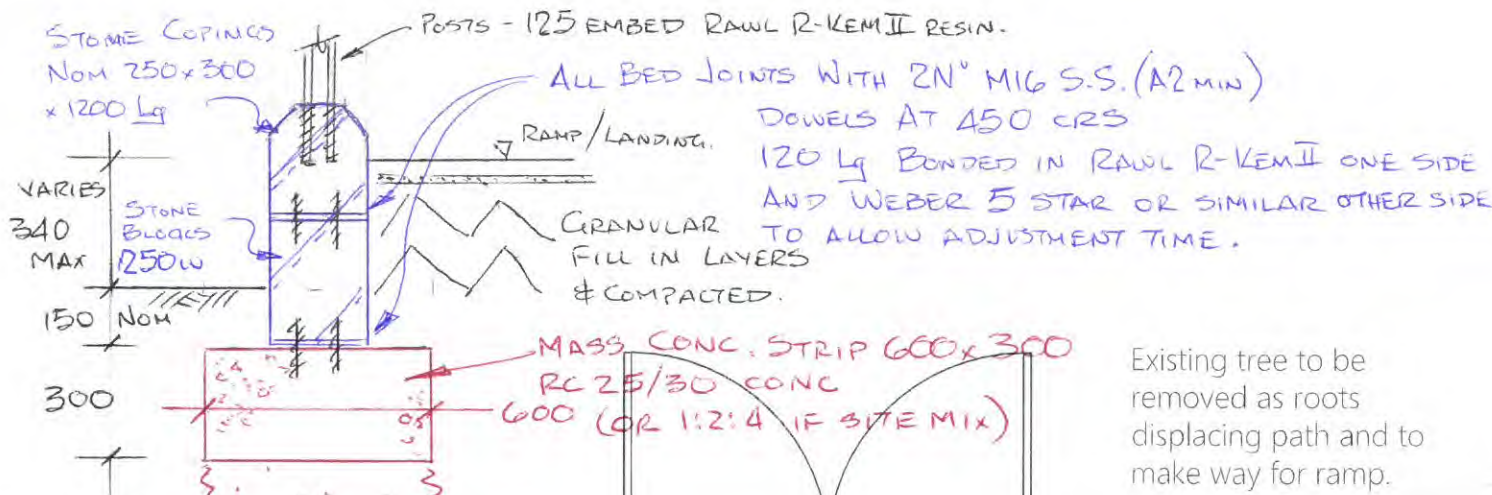 POSTS - 125 EMBED RAWL R-KEM II RESIN.
STONE COPINGS
NOM 250x300
x 1200 Lg
ALL BED JOINTS WITH 2N° M16 S.S. (A2 MIN)
DOWELS AT 450 CRS
120 Lg BONDED IN RAWL R-KEM II ONE SIDE
AND WEBER 5 STAR OR SIMILAR OTHER SIDE
TO ALLOW ADJUSTMENT TIME.
RAMP/LANDING.
VARIES
340
MAX
STONE
BLOCKS
250W
GRANULAR
FILL IN LAYERS
& COMPACTED.
150 NOM
MASS CONC. STRIP 600x300
RC 25/30 CONC
600 (OR 1:2:4 IF SITE MIX)
300
Existing tree to be
removed as roots
displacing path and to
make way for ramp.